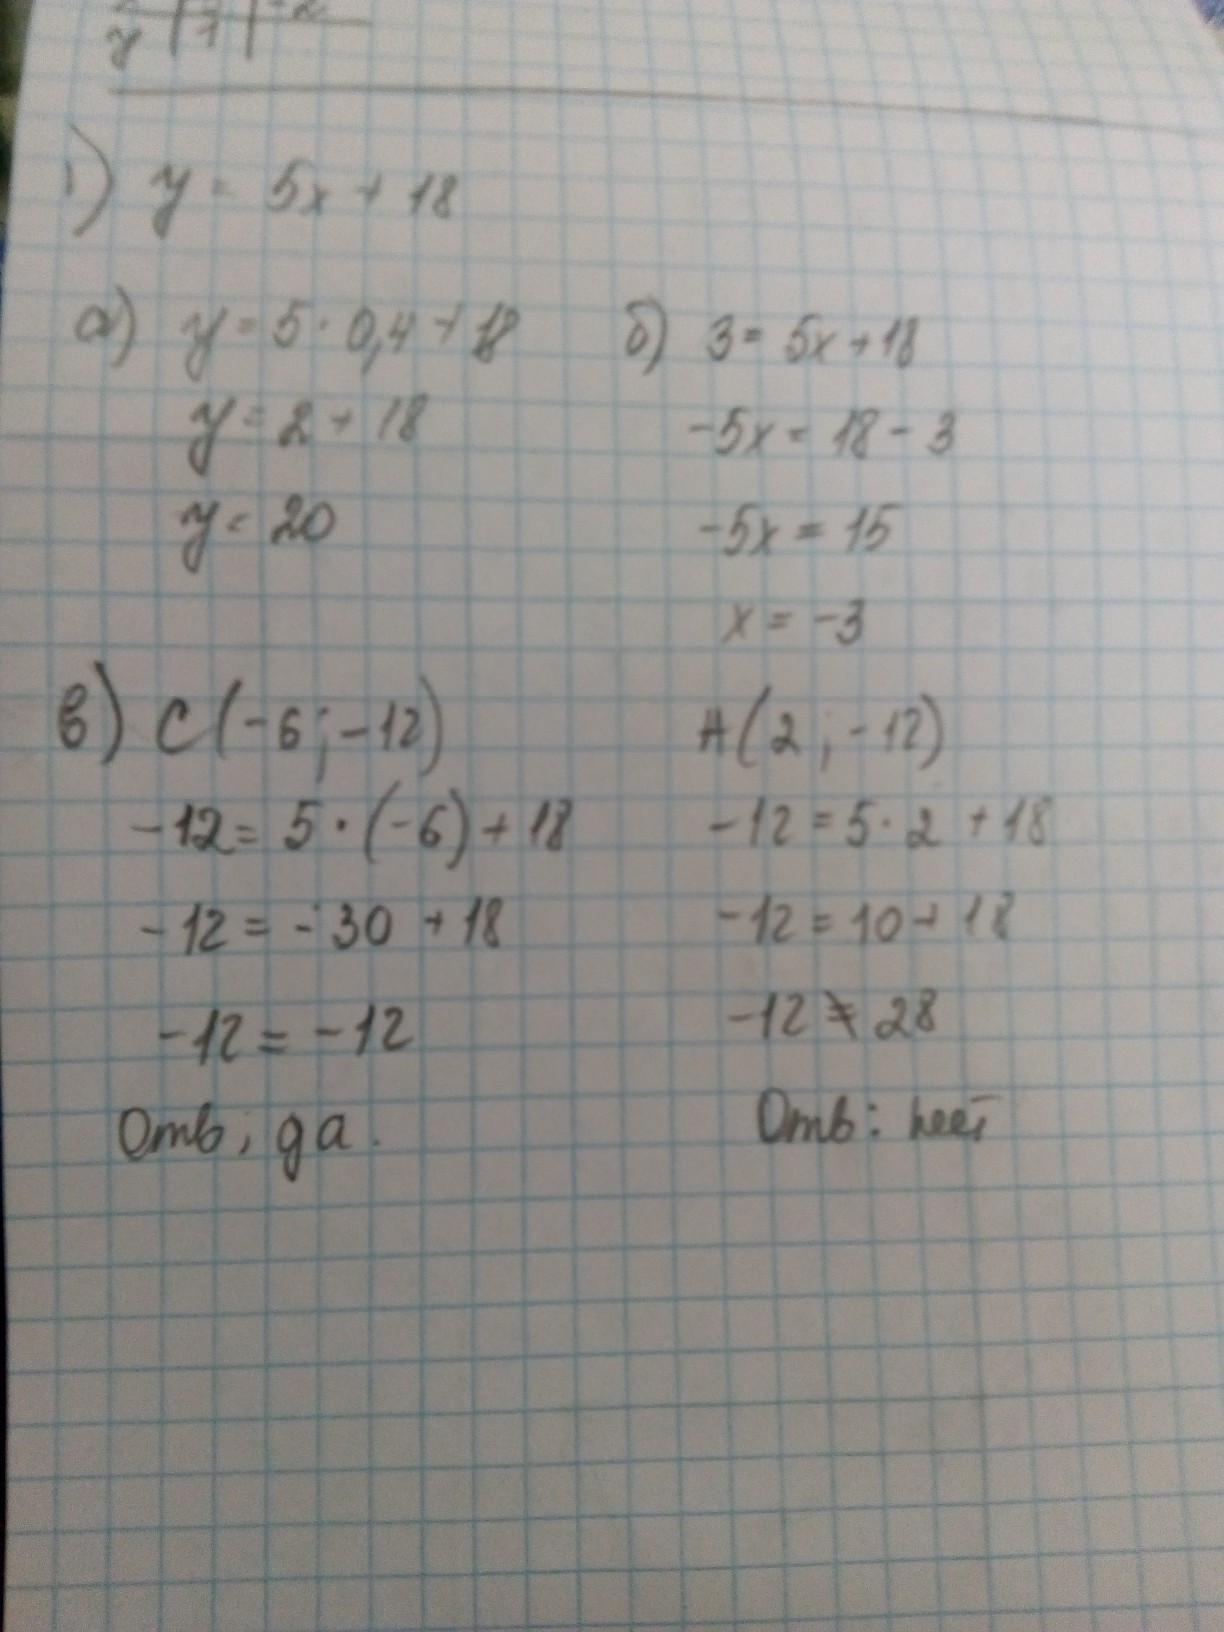 y | 7 | -2
1) y = 5x + 18
а) y = 5 · 0,4 + 18
y = 2 + 18
y = 20
б) 3 = 5x + 18
-5x = 18 - 3
-5x = 15
x = -3
в) C (-6 ; -12)
-12 = 5 · (-6) + 18
-12 = -30 + 18
-12 = -12
Отв ; да .
A (2 ; -12)
-12 = 5 · 2 + 18
-12 = 10 + 18
-12 ≠ 28
Отв : нет